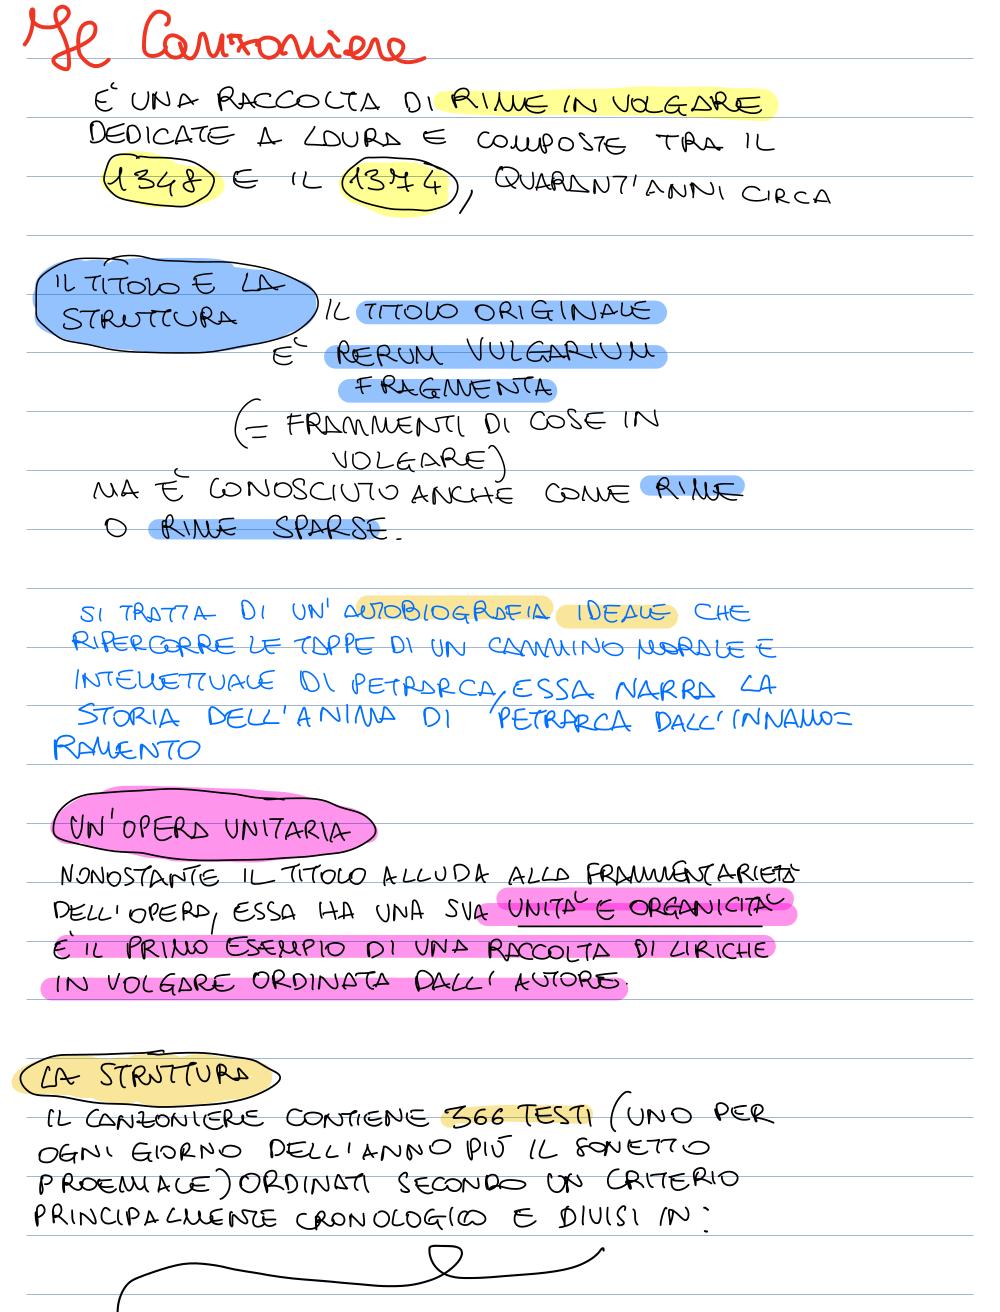 Il Canzoniere
È UNA RACCOLTA DI RIME IN VOLGARE
DEDICATE A LAURA E COMPOSTE TRA IL
1348 E IL 1374, QUARANT'ANNI CIRCA
IL TITOLO E LA
STRUTTURA
IL TITOLO ORIGINALE
È RERUM VULGARIUM
FRAGMENTA
(= FRAMMENTI DI COSE IN
VOLGARE)
MA È CONOSCIUTO ANCHE COME RIME
O RIME SPARSE.
SI TRATTA DI UN'AUTOBIOGRAFIA IDEALE CHE
RIPERCORRE LE TAPPE DI UN CAMMINO MORALE E
INTELLETTUALE DI PETRARCA, ESSA NARRA LA
STORIA DELL'ANIMA DI PETRARCA DALL'INNAMO=
RAMENTO
UN'OPERA UNITARIA
NONOSTANTE IL TITOLO ALLUDA ALLA FRAMMENTARIETÀ
DELL'OPERA, ESSA HA UNA SUA UNITÀ E ORGANICITÀ
È IL PRIMO ESEMPIO DI UNA RACCOLTA DI LIRICHE
IN VOLGARE ORDINATA DALL'AUTORE.
LA STRUTTURA
IL CANZONIERE CONTIENE 366 TESTI (UNO PER
OGNI GIORNO DELL'ANNO PIÙ IL SONETTO
PROEMIALE) ORDINATI SECONDO UN CRITERIO
PRINCIPALMENTE CRONOLOGICO E DIVISI IN: